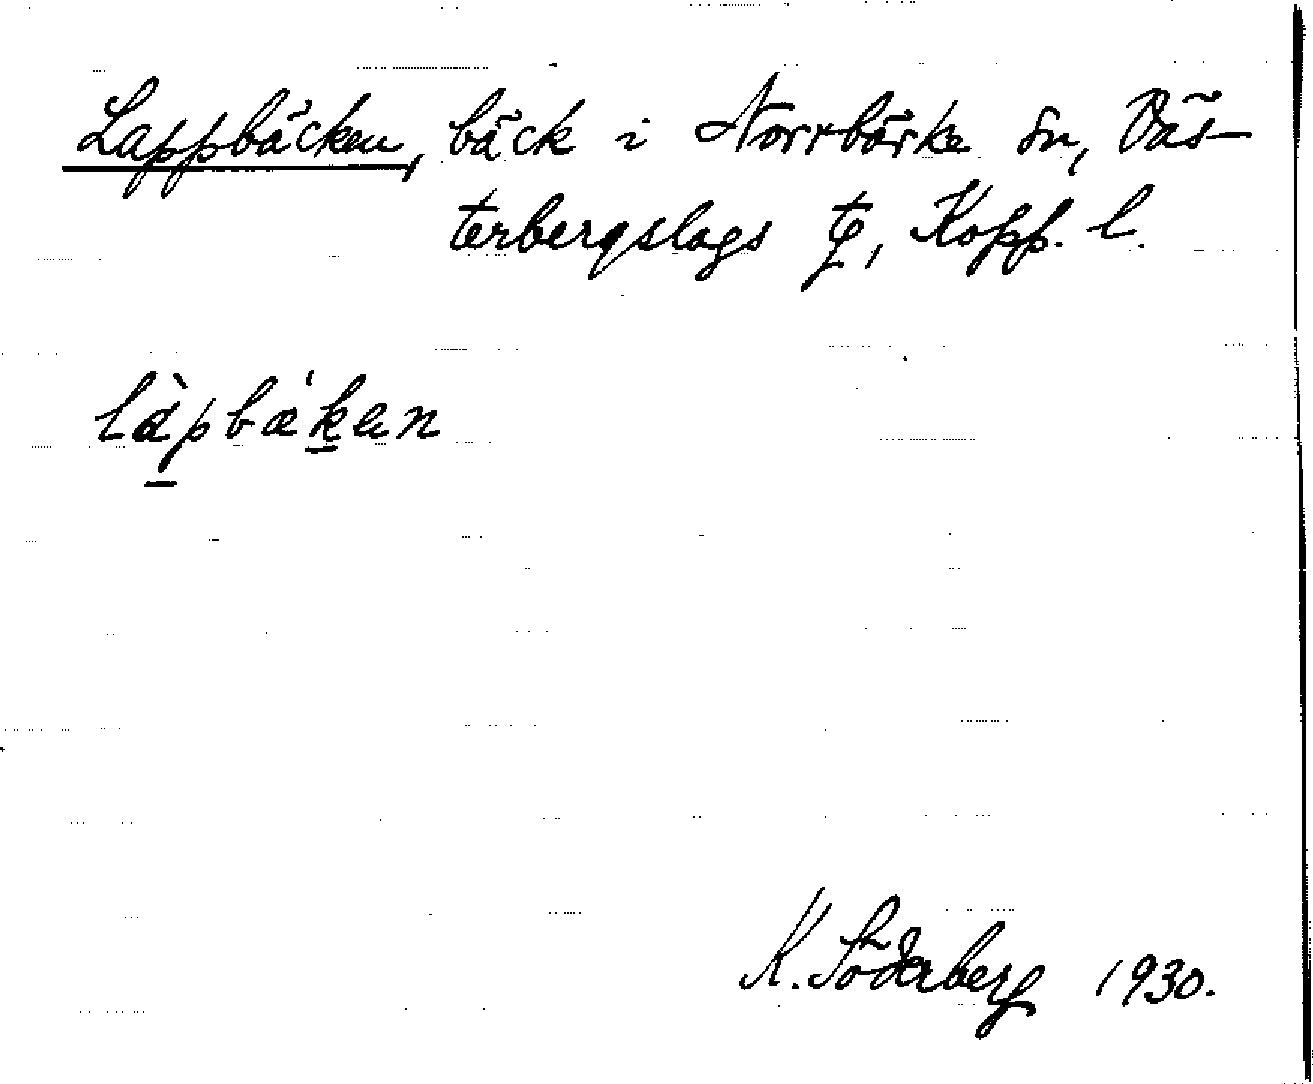 Lappbäcken, bäck i Norrbärke sn, Väs-
terbergslags tg, Kopp. l.
làpbæ̀ken
K. Söderberg 1930.